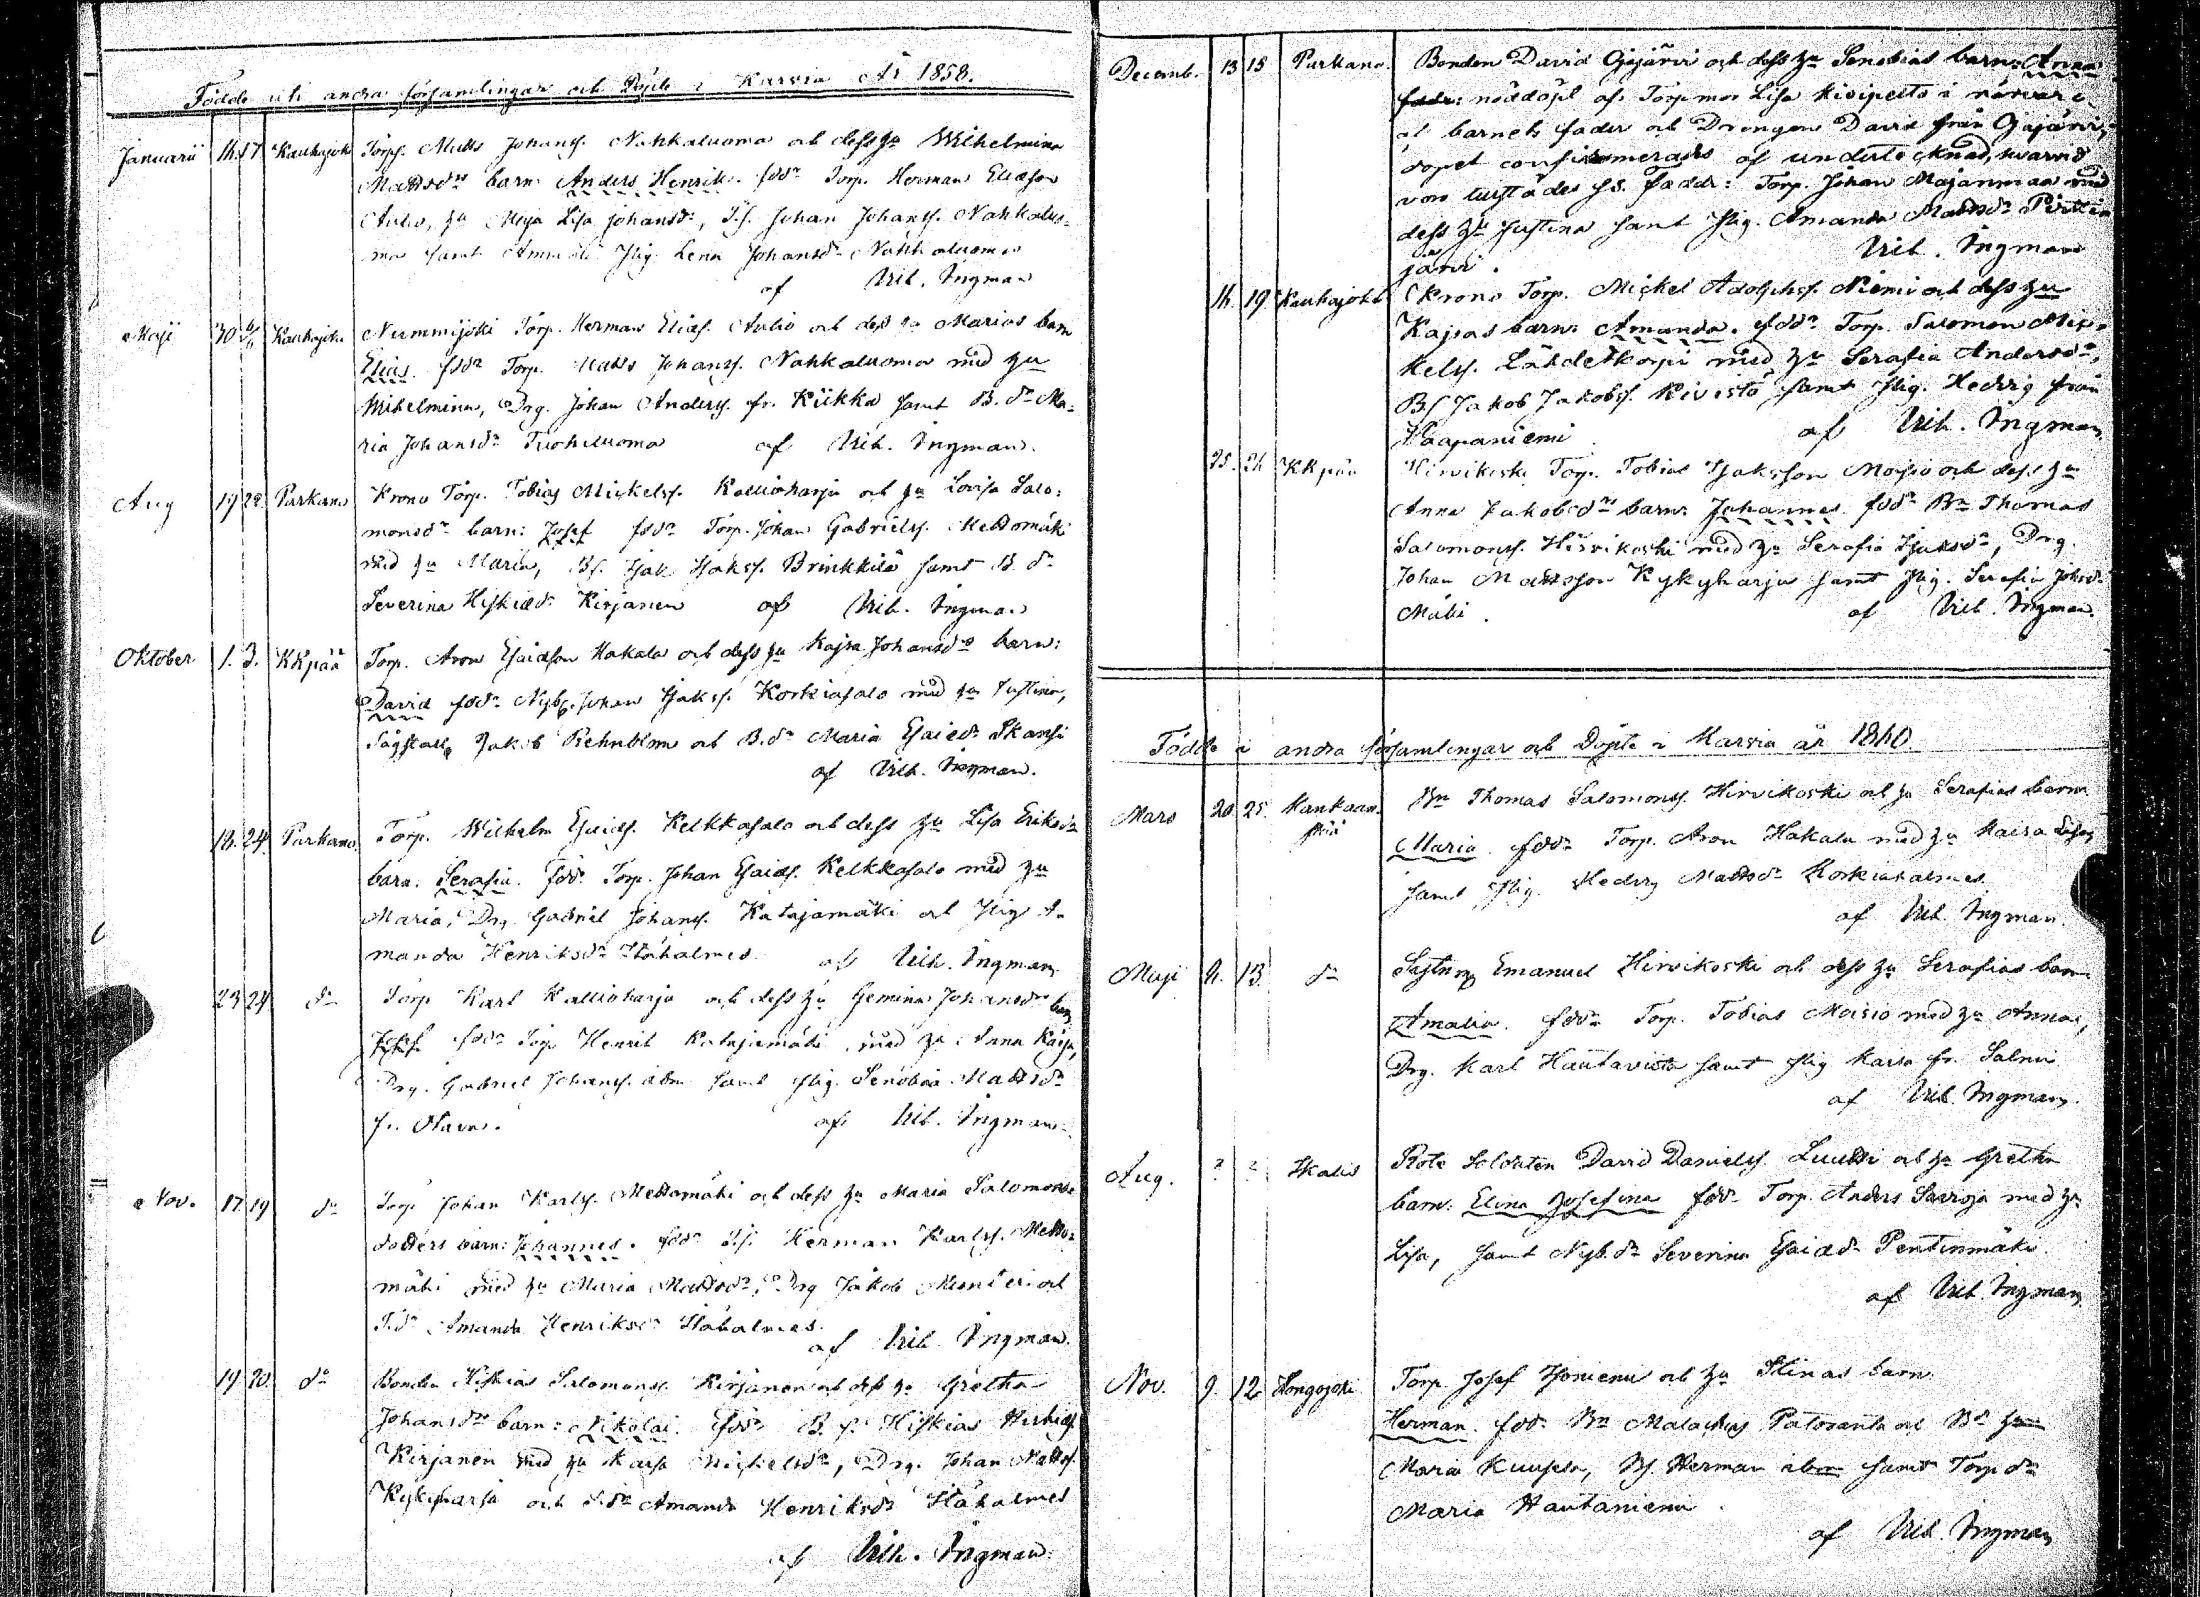 Födde uti andra församlingar och Döpte i Karvia År 1858.
Januarii 14. 17 Kauhajoki Torp. Matts Johans. Nahkaluoma och dess hu Wilhelmina
Mattsdrs barn: Anders Henrik. fddr Torp. Herman Eliasson
Aulio, hu Maja Lisa Johansdr, T.s. Johan Johans. Nahkaluo=
ma samt Pig. Lena Johansdr Nahkaluoma
af Vilh. Ingman
Maji 30 Kauhajoki Nummijoki Torp. Herman Elias. Aulio och dess hu Marias barn
Elias. fddr Torp. Matts Johans. Nahkaluoma med hu
Wilhelmina, Drg. Johan Anders. fr. Kiikka samt B. dr Ma=
ria Johansdr Tuohiluoma af Vilh. Ingman.
Aug 19 22 Parkano Krono Torp. Tobias Mickels. Kallioharju och hu Lovisa Salo=
monsdrs barn: Josef fddr Torp. Johan Gabriels. Mettomäki
med hu Maria, Bs. Isak Isaks. Brinkkilä samt B. dr
Severina Hiskiædr Kirjanen af Vilh. Ingman
Oktober 1. 3. KKpää Torp. Aron Esaiasson Hakala och dess hu Kajsa Johansdrs barn:
David fddr Nyb. Johan Isaks. Korkiasalo med hu Justina,
Jakob Rehnblom och B. dr Maria Esaiædr Skansi
af Vilh. Ingman.
18. 24. Parkano Torp. Wilhelm Esaias. Kelkkasalo och dess hu Lisa Eriksdrs
barn: Serafia. fddr Torp. Johan Esaias. Kelkkasalo med hu
Maria, Drg Gabriel Johans. Katajamäki och Pig A=
manda Henriksdr af Vilh. Ingman
23 24 dn Torp Karl Kallioharju och dess hu Gemina Johansdrs barn
Josef fddr Torp Henrik Katajamäki med hu Anna Kajsa,
Drg. Gabriel Johans. ibm samt Pig. Senobia Mattsdr
af Vilh. Ingman
Nov. 17 19 dn Torp Johan Karls. Mettomäki och dess hu Maria Salomons=
dotters barn: Johannes. fddr T.s. Herman Karls. Metto=
mäki med hu Maria Mattsdr, Drg Jakob och
T.dr Amanda Henriksdr
af Vilh. Ingman.
19 20. dn Bonden Hiskias Salomons. Kirjanen och dess hu Gretha
Johansdrs barn: Nikolai. fddr B. s. Hiskias Hiskias.
Kirjanen med hu Kajsa Mickelsdr, Drg. Johan Matts.
Kykyharju och T.dr Amanda Henriksdr
af Vilh. Ingman.
Decemb. 13 15 Parkano. Bonden David Gajärvi och dess hu Senobias barn: Anna
nöddöpt af Torpmor Lisa Kivipelto i närvaro
af barnets fader och Drängen David från Gajärvi,
dopet confirmerades af undertecknad, hvarvid
voro fadr: Torp. Johan Majanmaa med
dess hu Justina samt Pig. Amanda Mattsdr
järvi. Vilh. Ingman
14. 19. Kauhajoki Krono Torp. Mickel Adolphs. Niemi och dess hu
Kajsas barn: Amanda. fddr Torp. Salomon Mic=
kels. Lähdetkorpi med hu Serafia Andersdr,
B.s Jakob Jakobs. Kivistö samt Pig. Hedvig från
Haapaniemi af Vilh. Ingman
25. 26 KKpää Hirvikoski Torp. Tobias Isaksson Moisio och dess hu
Anna Jakobsdrs barn: Johannes. fddr Bn Thomas
Salomons. Hirvikoski med hu Serafia Isaksdr, Drg.
Johan Mattsson Kykyharju samt Pig. Serafia Johsdr
Mäki. af Vilh. Ingman.
Födde i andra församlingar och Döpte i Karvia år 1860
Mars 20 25. Kankaan=
pää Bn Thomas Salomons. Hirvikoski och hu Serafias barn
Maria. fddr Torp. Aron Hakala med hu Kaisa Lisa
samt Pig. Hedvig Mattsdr
af Vilh. Ingman.
Maji 9. 13. dn Emanuel Hirvikoski och dess hu Serafias barn
Amalia. fddr Torp. Tobias Moisio med hu Anna,
Drg. Karl Hautaviita samt Pig Kaisa fr. Salmi
af Vilh. Ingman.
Aug. Ikalis Rote Soldaten David Daniels. Luutti och hu Gretha
barn: Elina Josefina fddr Torp. Anders Savioja med hu
Lisa, samt Nyb.dr Severina Esaiædr Pentinmäki.
af Vilh. Ingman
Nov. 9. 12. Hongojoki Torp Josef och hu Stinas barn
Herman. fddr Bn Malachias och Bd
Maria Kuusela, Bs. Herman ibm samt Torp dr
Maria Hautaniemi.
af Vilh. Ingman